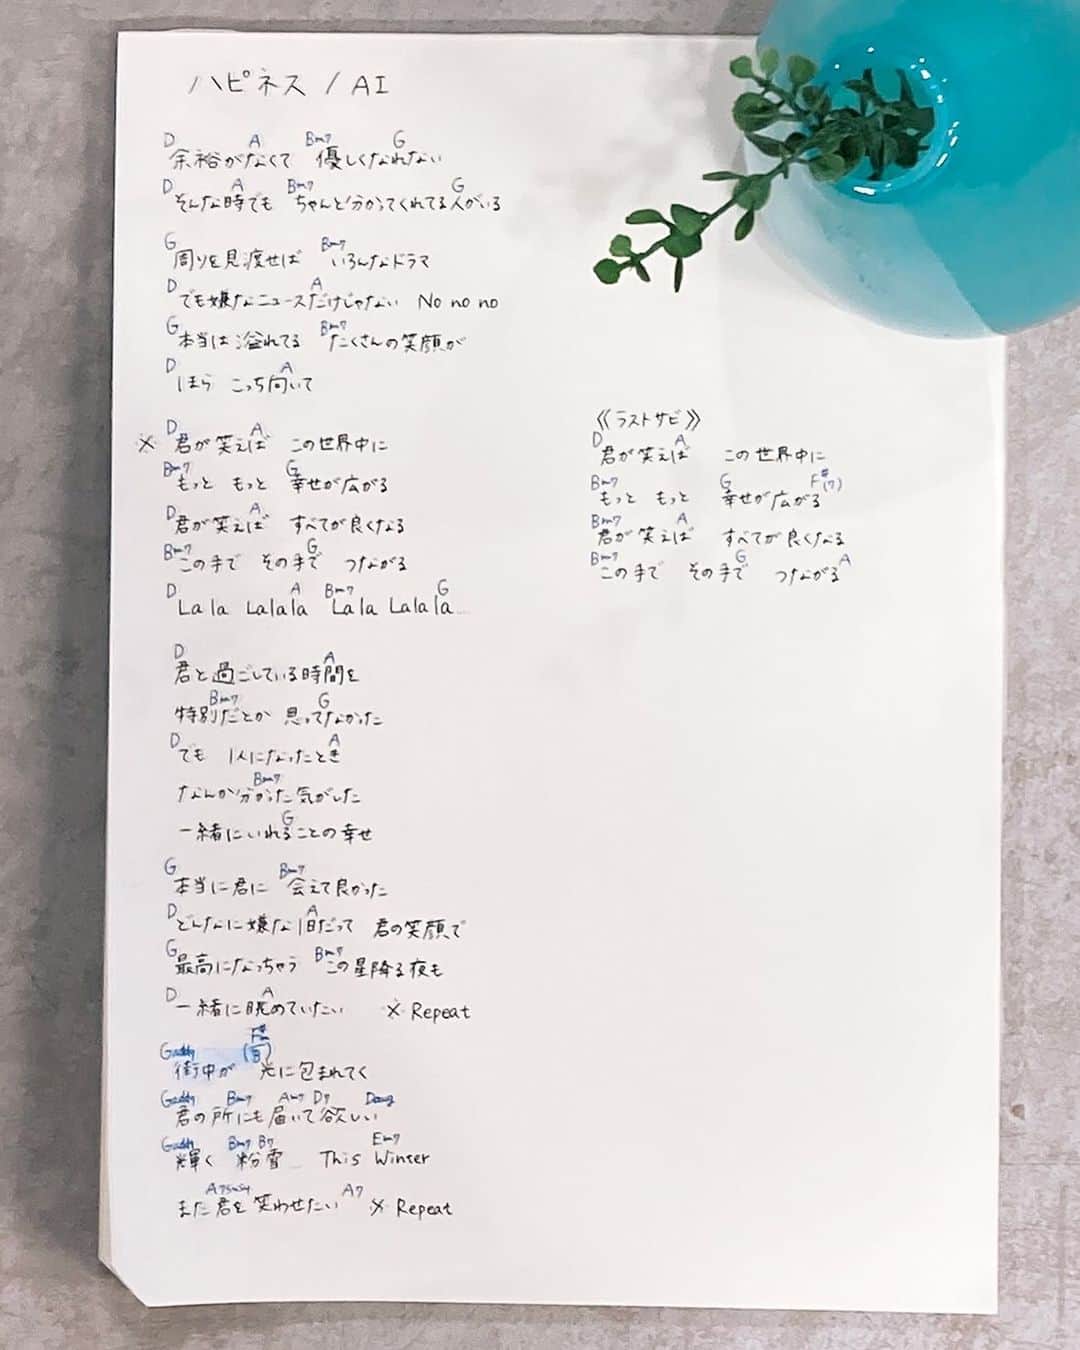 ハピネス / AI
D A Bm7 G
余裕がなくて 優しくなれない
D A Bm7 G
そんな時でも ちゃんと分かってくれてる人がいる
G Bm7
周りを見渡せば いろんなドラマ
D A
でも嫌なニュースだけじゃない No no no
G Bm7
本当は溢れてる たくさんの笑顔が
D A
ほら こっち向いて
D A
※ 君が笑えば この世界中に
Bm7 G
もっと もっと 幸せが広がる
D A
君が笑えば すべてが良くなる
Bm7 G
この手で その手で つながる
D A Bm7 G
La la La la la La la La la la
D A
君と過ごしている時間を
Bm7 G
特別だとか 思ってなかった
D A
でも 1人になったとき
Bm7
なんか分かった気がした
G
一緒にいれることの幸せ
G Bm7
本当に君に 会えて良かった
D A
どんなに嫌な1日だって 君の笑顔で
G Bm7
最高になっちゃう この星降る夜も
D A
一緒に眺めていたい ※ Repeat
Gadd9
街中が 光に包まれてく
Gadd9 Bm7 Am7 D7
君の所にも届いて欲しい
Gadd9 Bm7 B7 Em7
輝く 粉雪 This Winter
A7sus4 A7
また君を笑わせたい ※ Repeat
《ラストサビ》
D A
君が笑えば この世界中に
Bm7 G F#(7)
もっと もっと 幸せが広がる
Bm7 A
君が笑えば すべてが良くなる
Bm7 G A
この手で その手で つながる